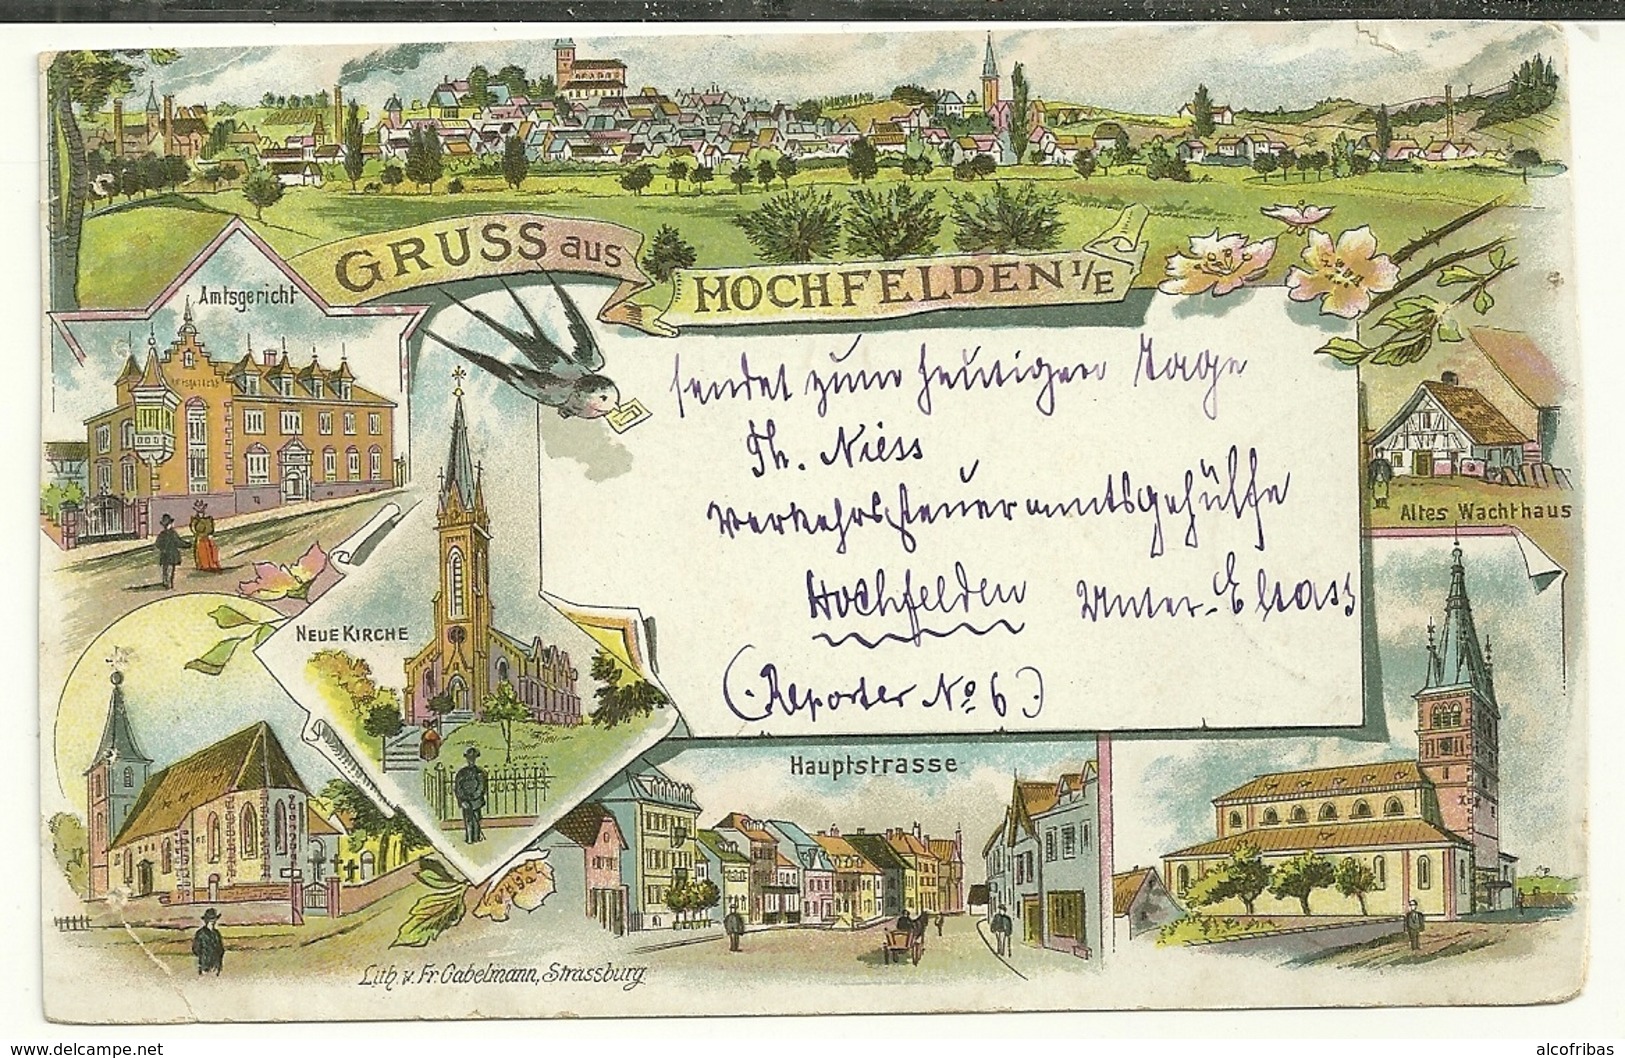 GRUSS aus
HOCHFELDEN I/E
Amtsgericht
sendet zum heutigen Tage
Th. Niess
Verkehrssteueramtsgehülfe
Hochfelden Unter-Elsass
(Reporter No 6)
Altes Wachthaus
NEUE KIRCHE
Hauptstrasse
Lith. v. Fr. Gabelmann, Strassburg
https://www.delcampe.net
alcofribas